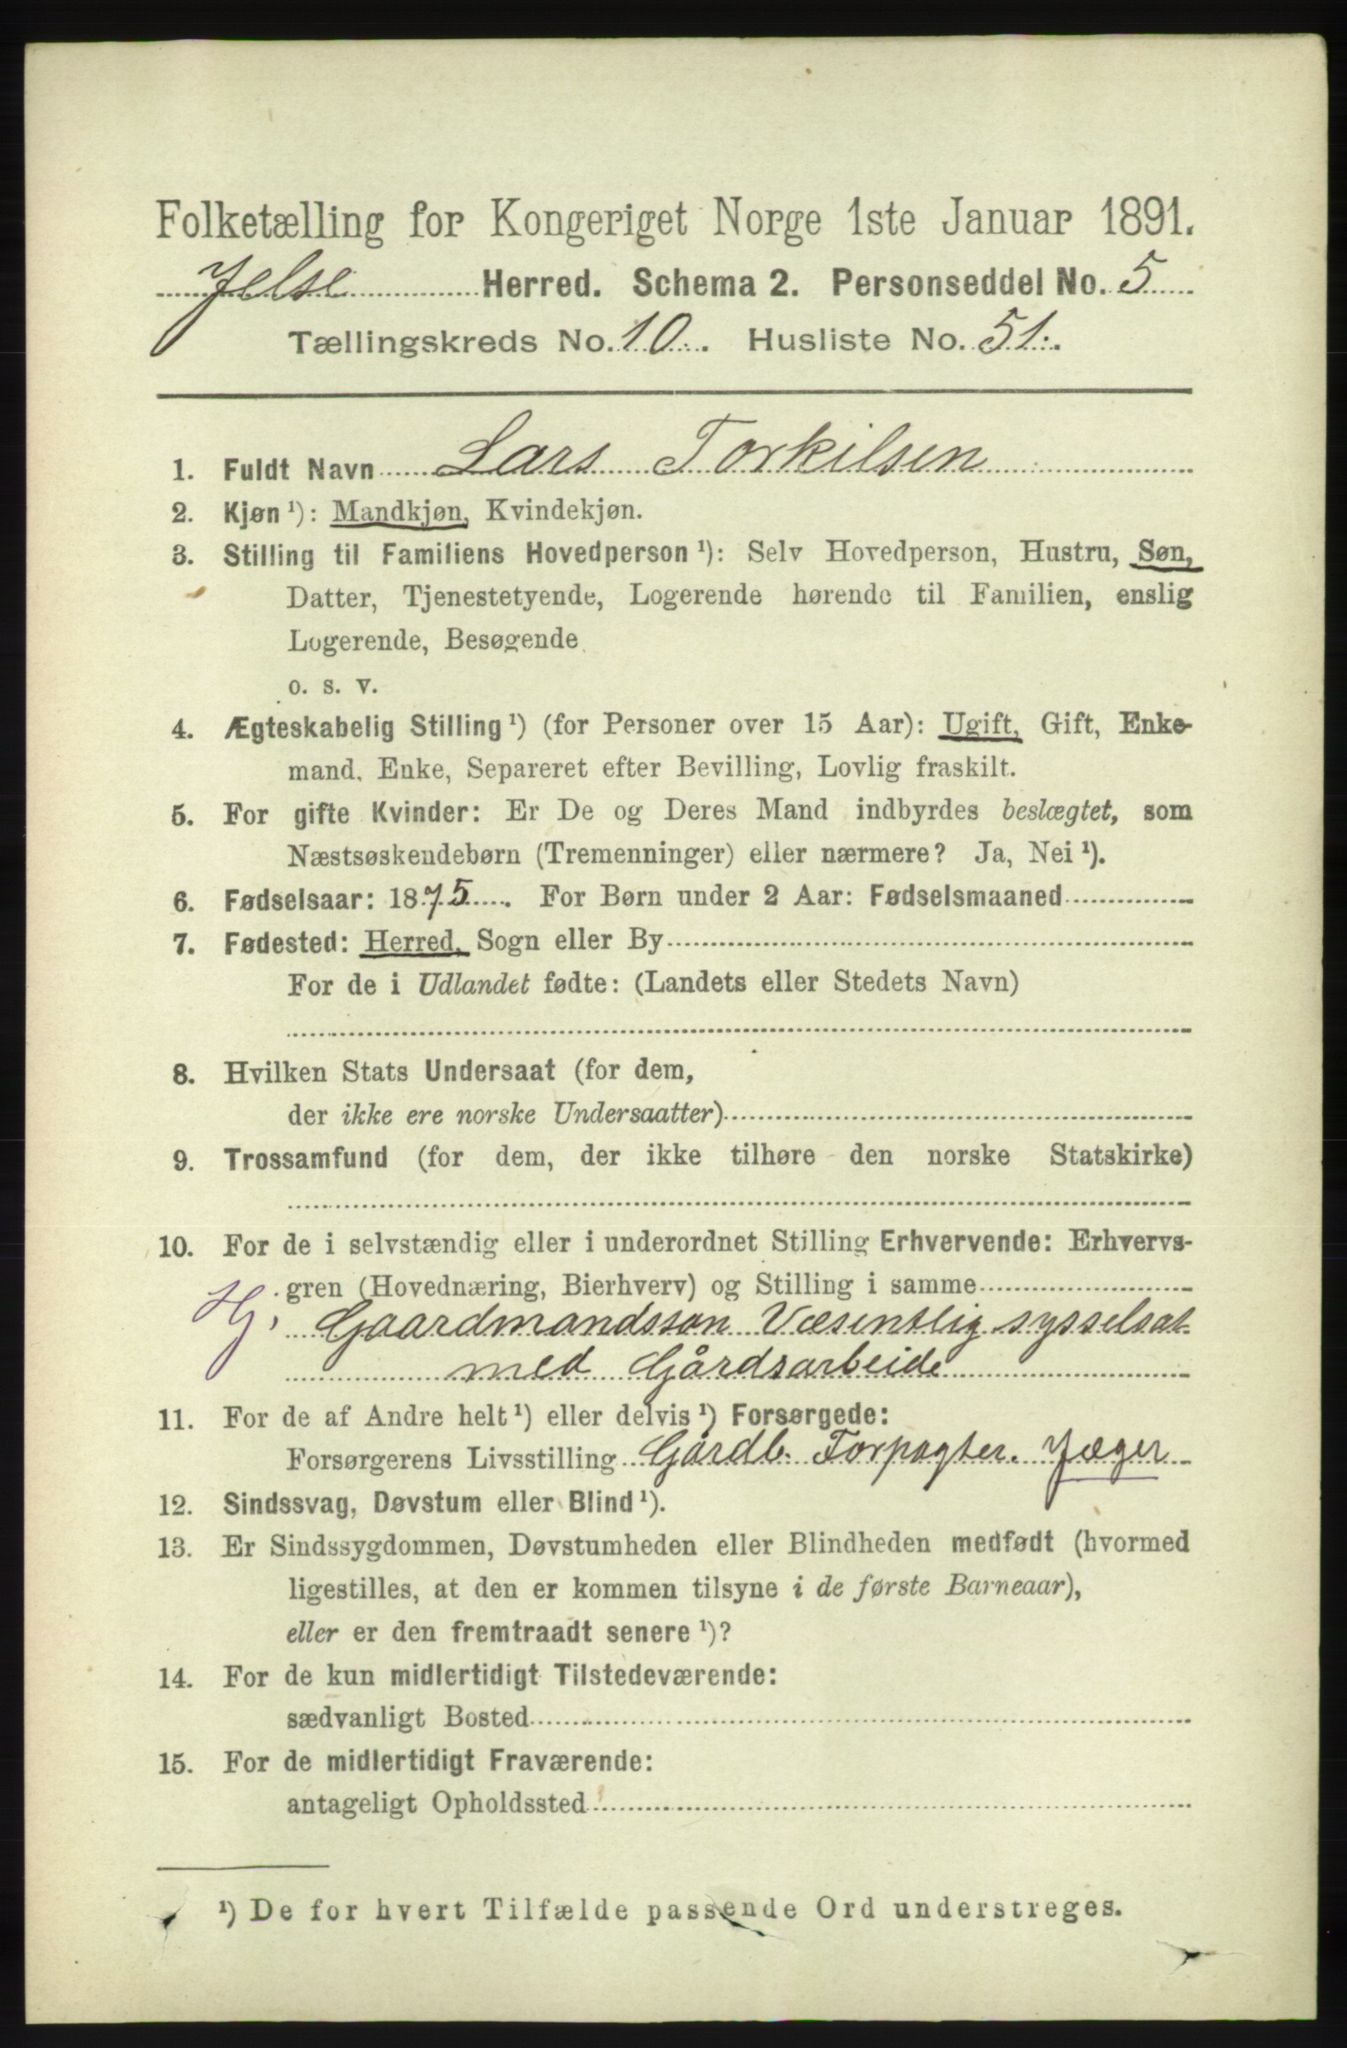 Folketælling for Kongeriget Norge 1ste Januar 1891.
Jelse Herred. Schema 2. Personseddel No. 5
Tællingskreds No. 10. Husliste No. 51.
1. Fuldt Navn Lars Torkilsen
2. Kjøn¹): Mandkjøn, Kvindekjøn.
3. Stilling til Familiens Hovedperson¹): Selv Hovedperson, Hustru, Søn,
Datter, Tjenestetyende, Logerende hørende til Familien, enslig
Logerende, Besøgende
o. s. v.
4. Ægteskabelig Stilling¹) (for Personer over 15 Aar): Ugift, Gift, Enke-
mand, Enke, Separeret efter Bevilling, Lovlig fraskilt.
5. For gifte Kvinder: Er De og Deres Mand indbyrdes beslægtet, som
Næstsøskendebørn (Tremenninger) eller nærmere? Ja, Nei¹).
6. Fødselsaar: 1875. For Børn under 2 Aar: Fødselsmaaned
7. Fødested: Herred, Sogn eller By
For de i Udlandet fødte: (Landets eller Stedets Navn)
8. Hvilken Stats Undersaat (for dem,
der ikke ere norske Undersaatter)
9. Trossamfund (for dem, der ikke tilhøre den norske Statskirke)
10. For de i selvstændig eller i underordnet Stilling Erhvervende: Erhvervs-
gren (Hovednæring, Bierhverv) og Stilling i samme
Hj. Gaardmandssøn Væsentlig sysselsat
med Gårdsarbeide
11. For de af Andre helt¹) eller delvis¹) Forsørgede:
Forsørgerens Livsstilling Gårdb. Forpagter. Jæger
12. Sindssvag, Døvstum eller Blind¹).
13. Er Sindssygdommen, Døvstumheden eller Blindheden medfødt (hvormed
ligestilles, at den er kommen tilsyne i de første Barneaar),
eller er den fremtraadt senere¹)?
14. For de kun midlertidigt Tilstedeværende:
sædvanligt Bosted
15. For de midlertidigt Fraværende:
antageligt Opholdssted
¹) De for hvert Tilfælde passende Ord understreges.